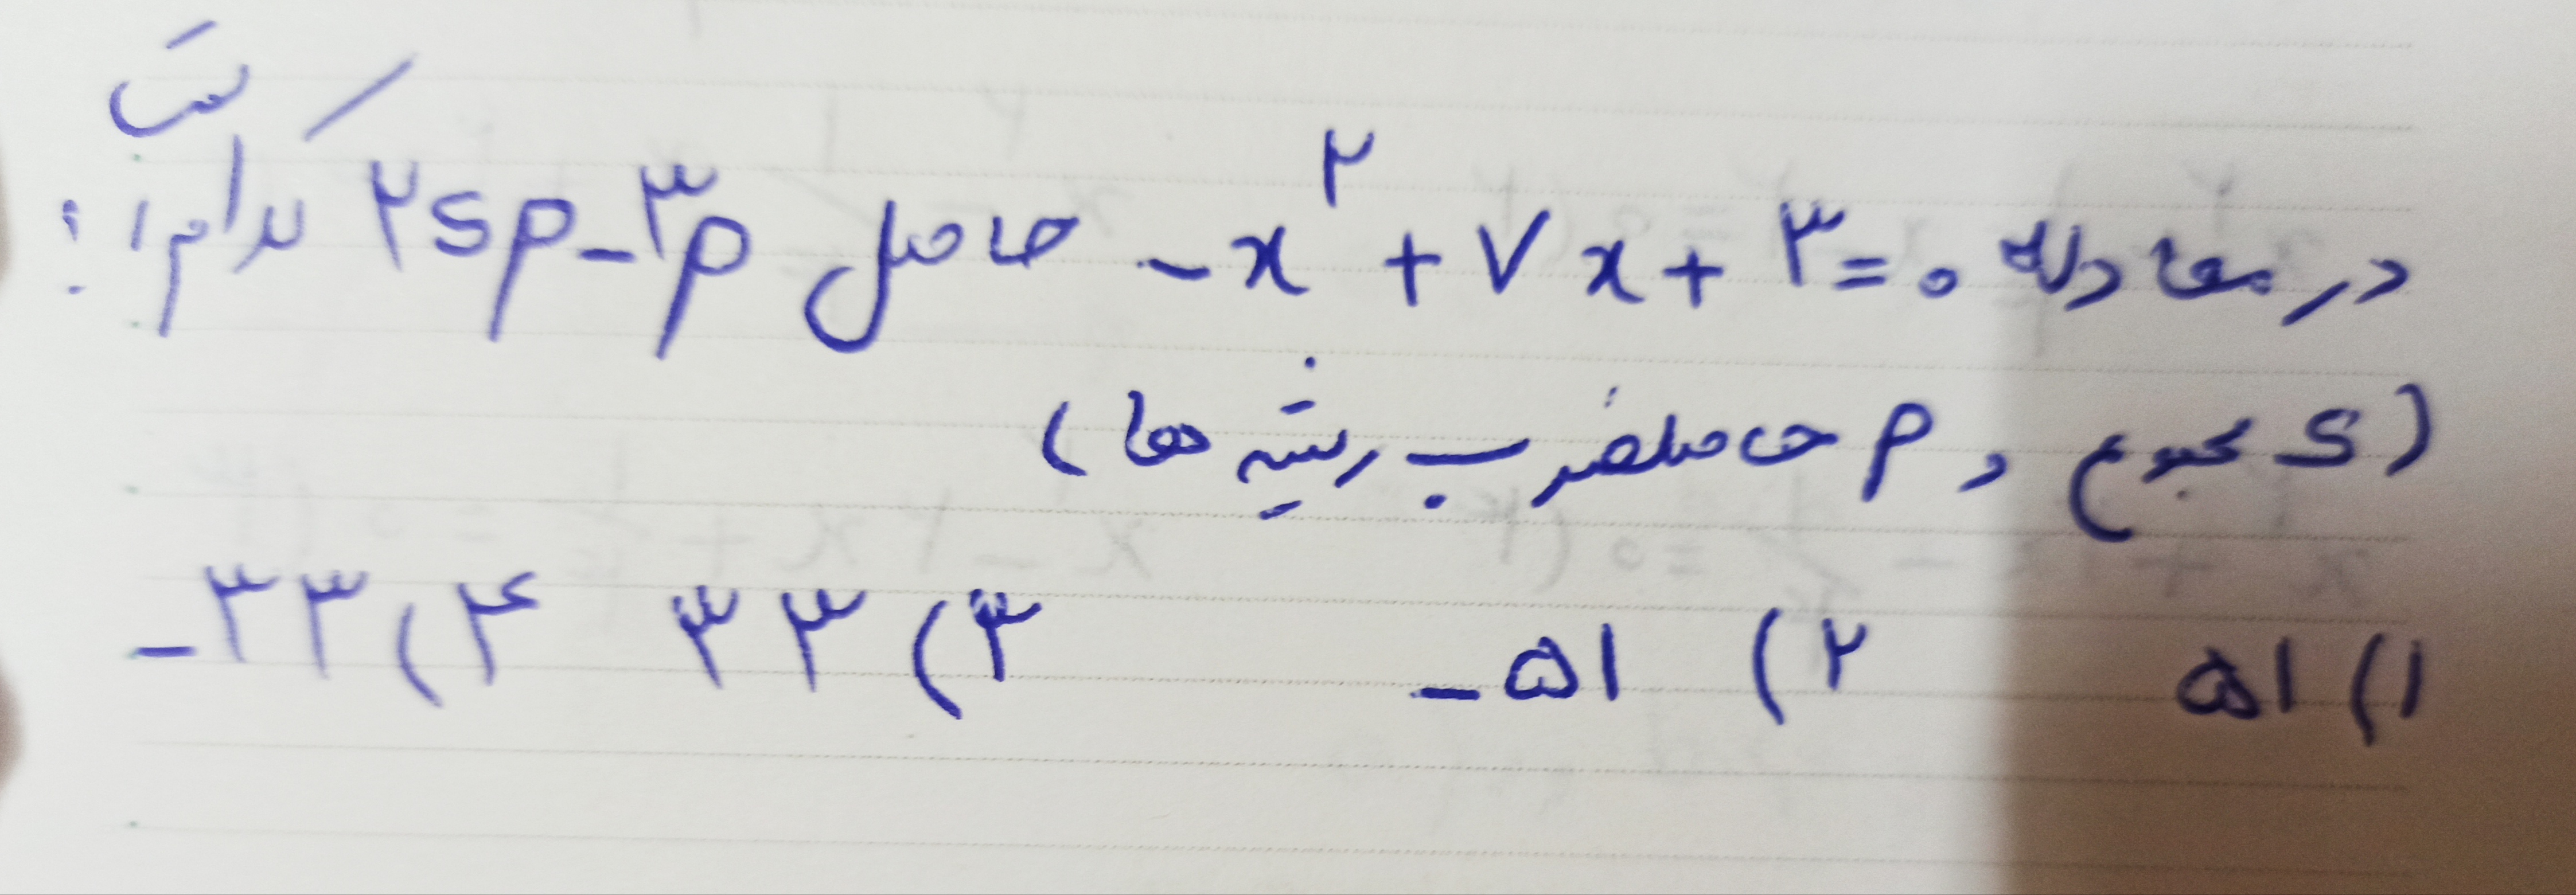 در معادله -x² + ۷x + ۳ = ۰ حاصل ۲sp - ۳p کدام است؟
(s مجموع و p حاصلضرب ریشه ها)
۱) ۵۱ ۲) -۵۱ ۳) ۳۳ ۴) -۳۳